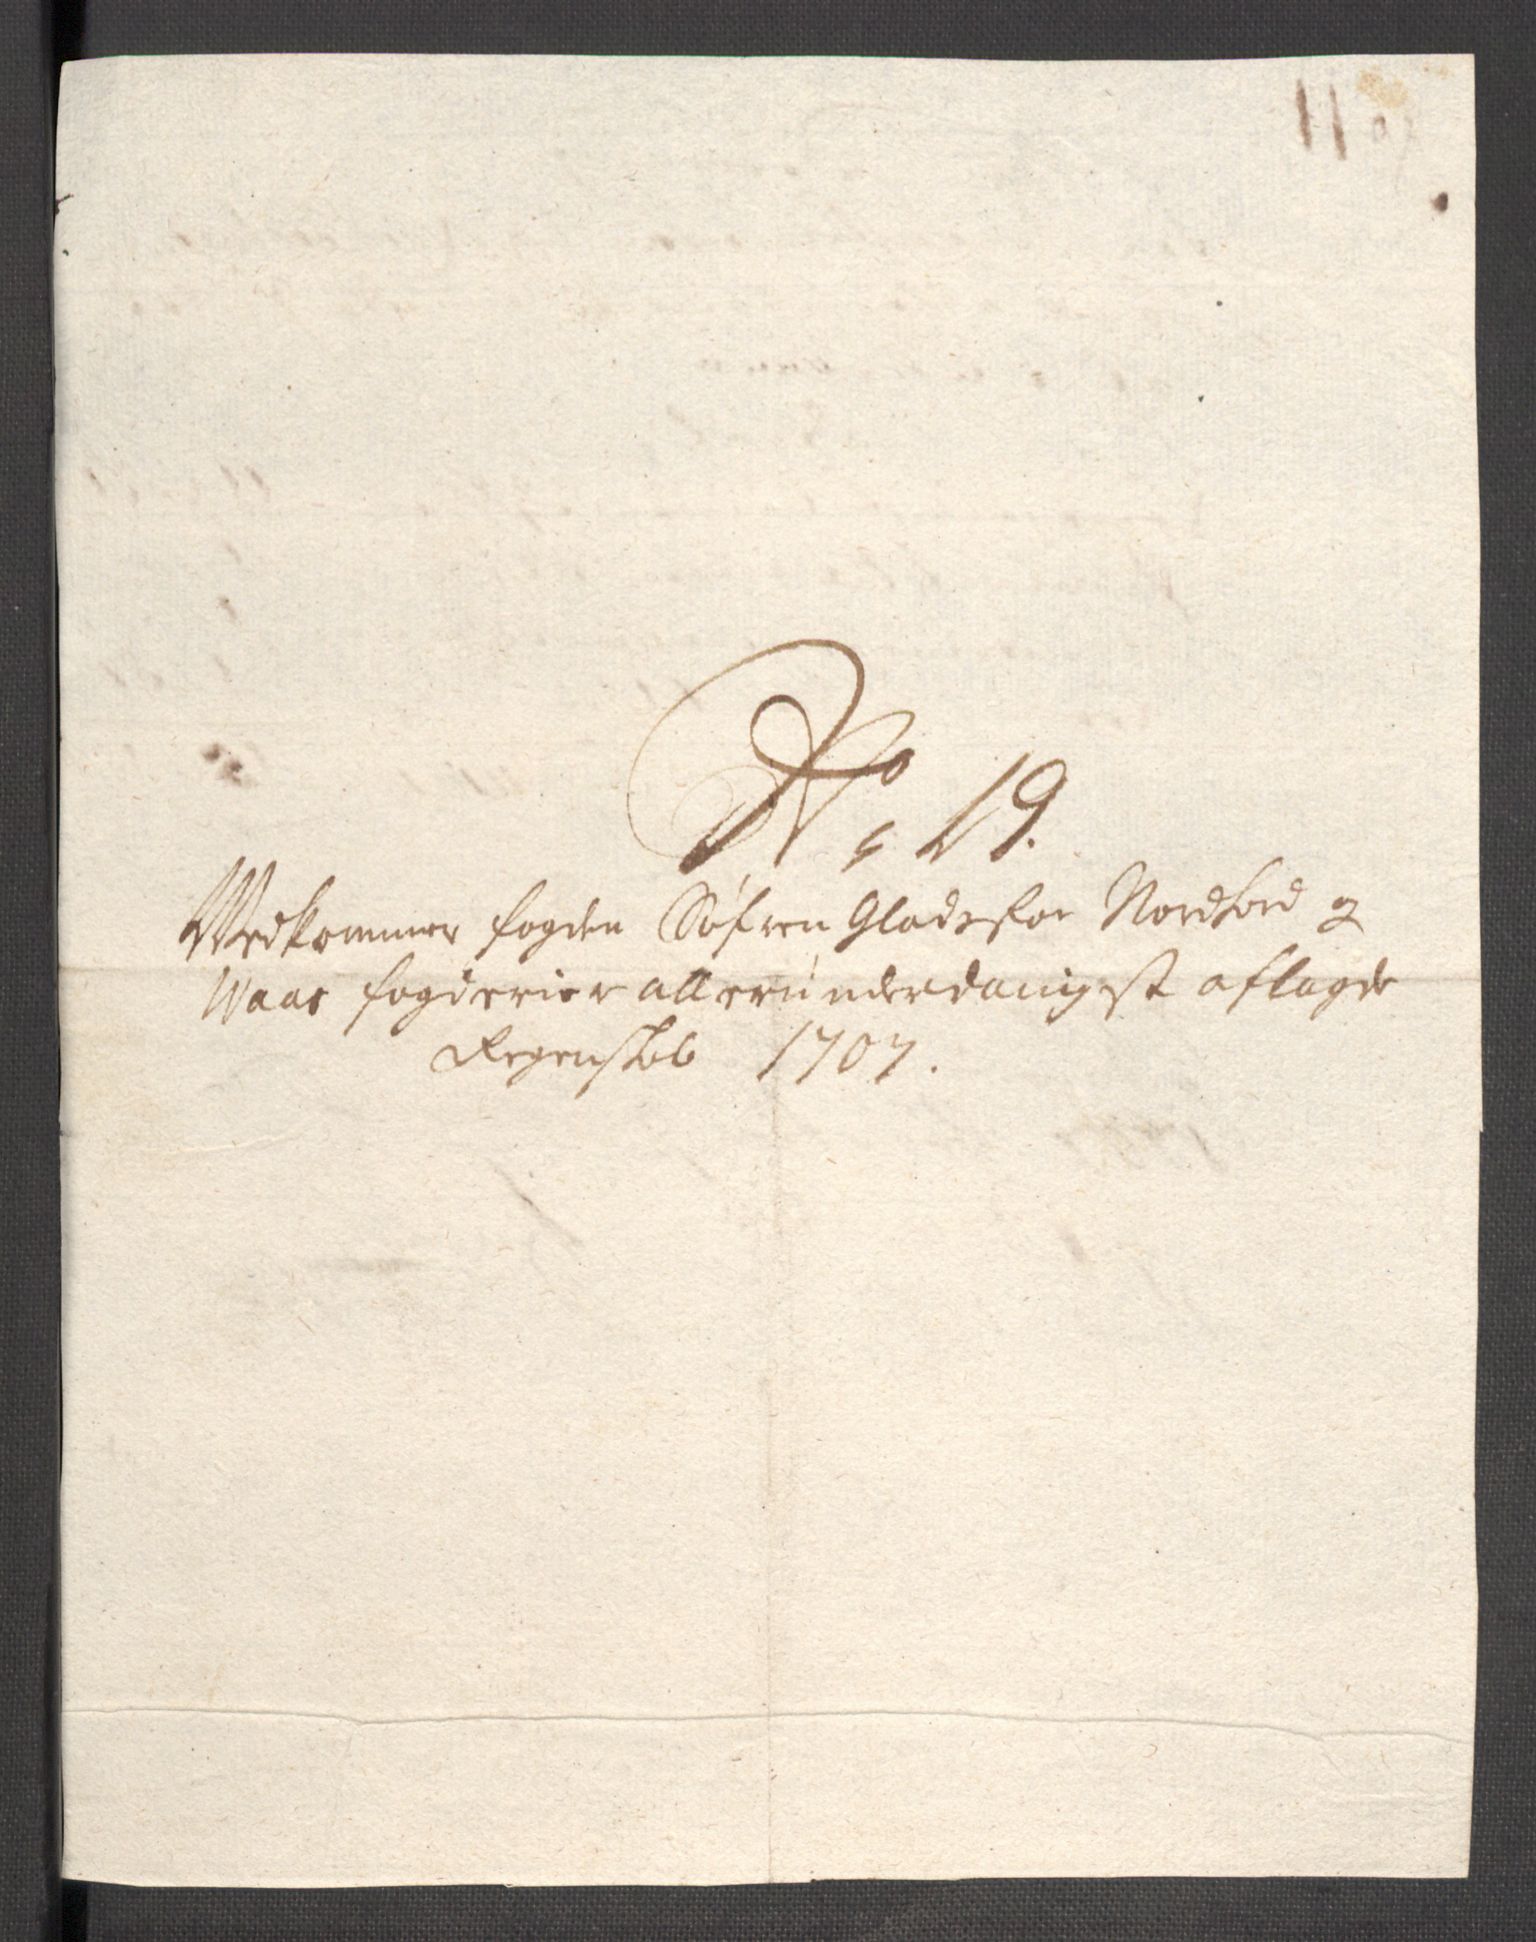 No 19.
Vedkommer fogden Søfren Glads for Nordhord og
Waas fogderier allerunderdanigst aflagde
Regenskab 1707.